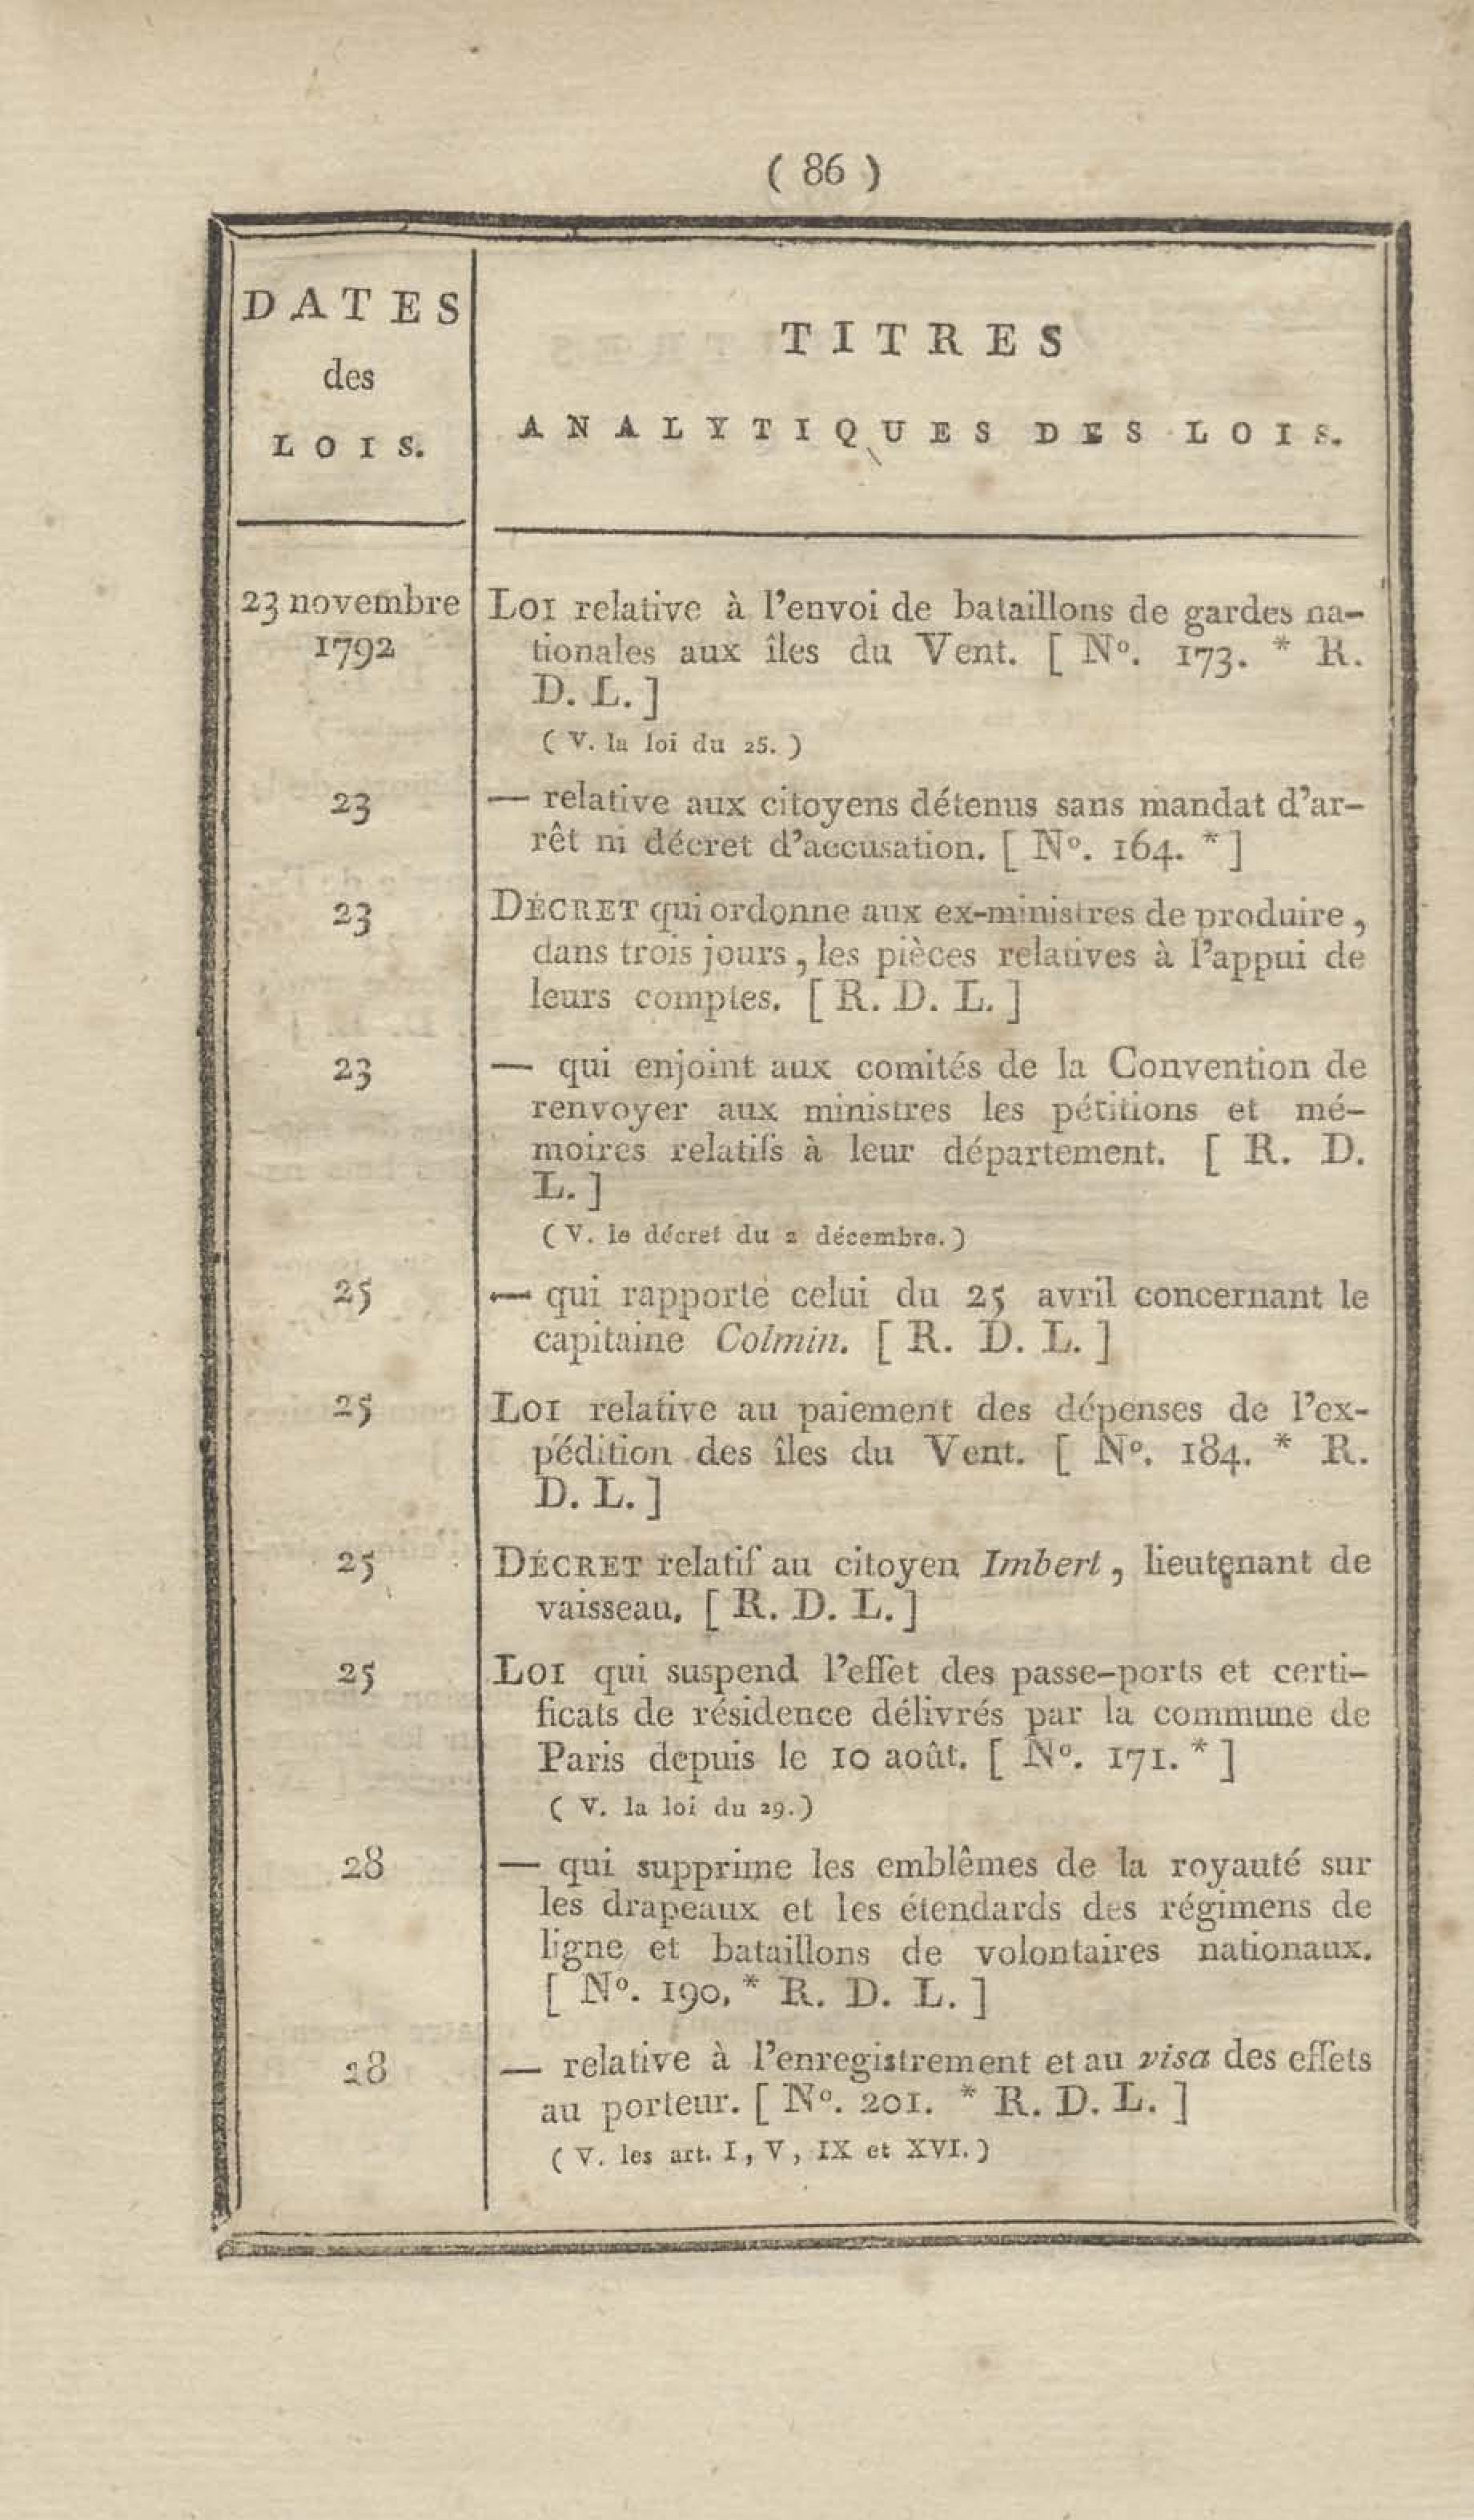 ( 86 )
DATES
des
LOIS.
TITRES
ANALYTIQUES DES LOIS.
23 novembre
1792
LOI relative à l'envoi de bataillons de gardes na-
tionales aux îles du Vent. [ Nº. 173. * R.
D. L. ]
( V. la loi du 25. )
23
— relative aux citoyens détenus sans mandat d'ar-
rêt ni décret d'accusation. [ Nº. 164. * ]
23
DÉCRET qui ordonne aux ex-ministres de produire,
dans trois jours, les pièces relatives à l'appui de
leurs comptes. [ R. D. L. ]
23
— qui enjoint aux comités de la Convention de
renvoyer aux ministres les pétitions et mé-
moires relatifs à leur département. [ R. D.
L. ]
( V. le décret du 2 décembre. )
25
— qui rapporte celui du 25 avril concernant le
capitaine Colmin. [ R. D. L. ]
25
LOI relative au paiement des dépenses de l'ex-
pédition des îles du Vent. [ Nº. 184. * R.
D. L. ]
25
DÉCRET relatif au citoyen Imbert, lieutenant de
vaisseau. [ R. D. L. ]
25
LOI qui suspend l'effet des passe-ports et certi-
ficats de résidence délivrés par la commune de
Paris depuis le 10 août. [ Nº. 171. * ]
( V. la loi du 29. )
28
— qui supprime les emblêmes de la royauté sur
les drapeaux et les étendards des régimens de
ligne et bataillons de volontaires nationaux.
[ Nº. 190. * R. D. L. ]
28
— relative à l'enregistrement et au visa des effets
au porteur. [ Nº. 201. * R. D. L. ]
( V. les art. I, V, IX et XVI. )